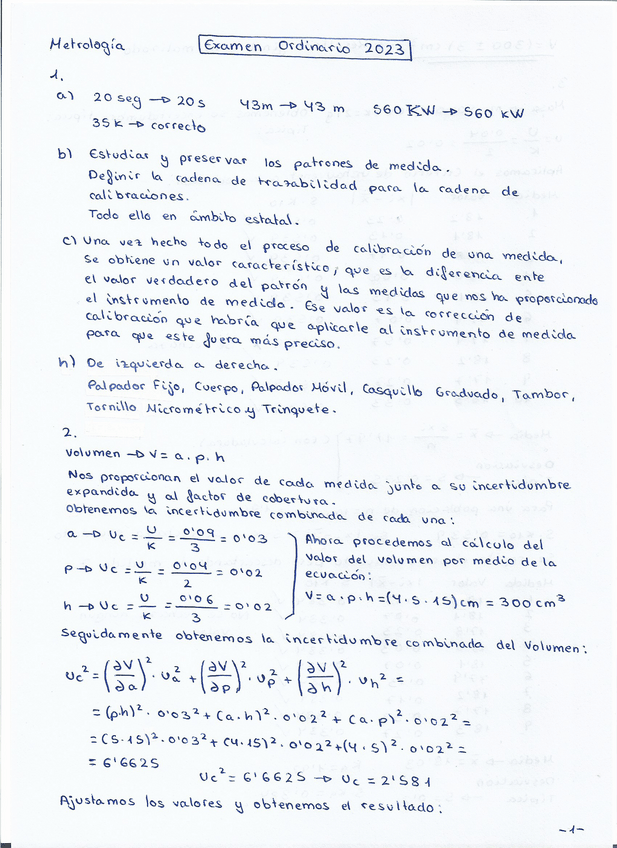 Metrología
Examen Ordinario 2023
1.
a) 20 seg → 20 s 43m → 43 m 560 KW → 560 kW
35 k → correcto
b) Estudiar y preservar los patrones de medida.
Definir la cadena de trazabilidad para la cadena de
calibraciones.
Todo ello en ámbito estatal.
c) Una vez hecho todo el proceso de calibración de una medida,
se obtiene un valor característico, que es la diferencia ente
el valor verdadero del patrón y las medidas que nos ha proporcionado
el instrumento de medido. Ese valor es la corrección de
calibración que habría que aplicarle al instrumento de medida
para que este fuera más preciso.
h) De izquierda a derecha.
Palpador Fijo, Cuerpo, Palpador Móvil, Casquillo Graduado, Tambor,
Tornillo Micrométrico y Trinquete.
2.
Volumen → V = a . p . h
Nos proporcionan el valor de cada medida junto a su incertidumbre
expandida y al factor de cobertura.
Obtenemos la incertidumbre combinada de cada una:
a → Uc = U/K = 0'09/3 = 0'03
p → Uc = U/K = 0'04/2 = 0'02
h → Uc = U/K = 0'06/3 = 0'02
Ahora procedemos al cálculo del
valor del volumen por medio de la
ecuación:
V = a . p . h = (4 . 5 . 15) cm = 300 cm³
Seguidamente obtenemos la incertidumbre combinada del Volumen:
Uc² = (∂V/∂a)² · Ua² + (∂V/∂p)² · Up² + (∂V/∂h)² · Uh² =
= (p.h)² · 0'03² + (a.h)² · 0'02² + (a.p)² · 0'02² =
= (5.15)² · 0'03² + (4.15)² · 0'02² + (4.5)² · 0'02² =
= 6'6625
Uc² = 6'6625 → Uc = 2'581
Ajustamos los valores y obtenemos el resultado:
-1-